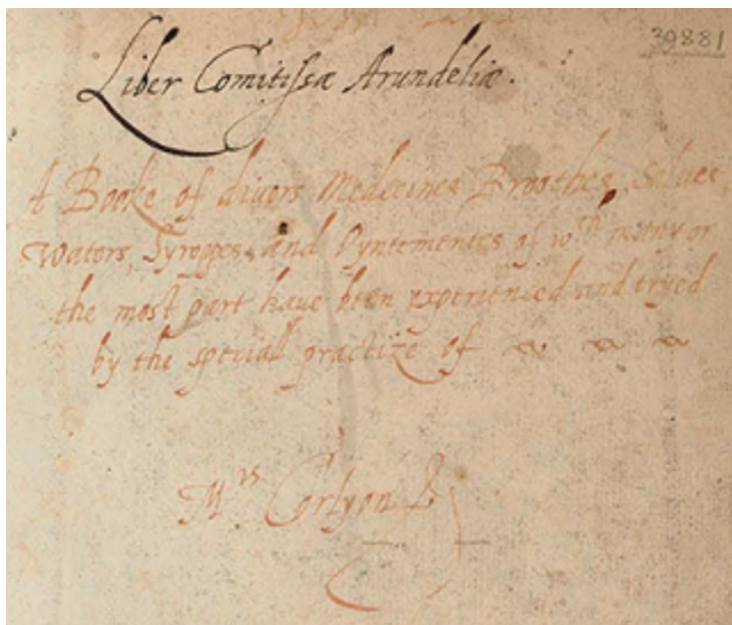 39881
Liber Comitissæ Arundeliæ.
A Booke of divers Medecines, Broothes, Salves,
Waters, Syroppes and Oyntementes of wch many or
the most part have been experienced and tryed
by the speciall practize of
Mrs Corlyon